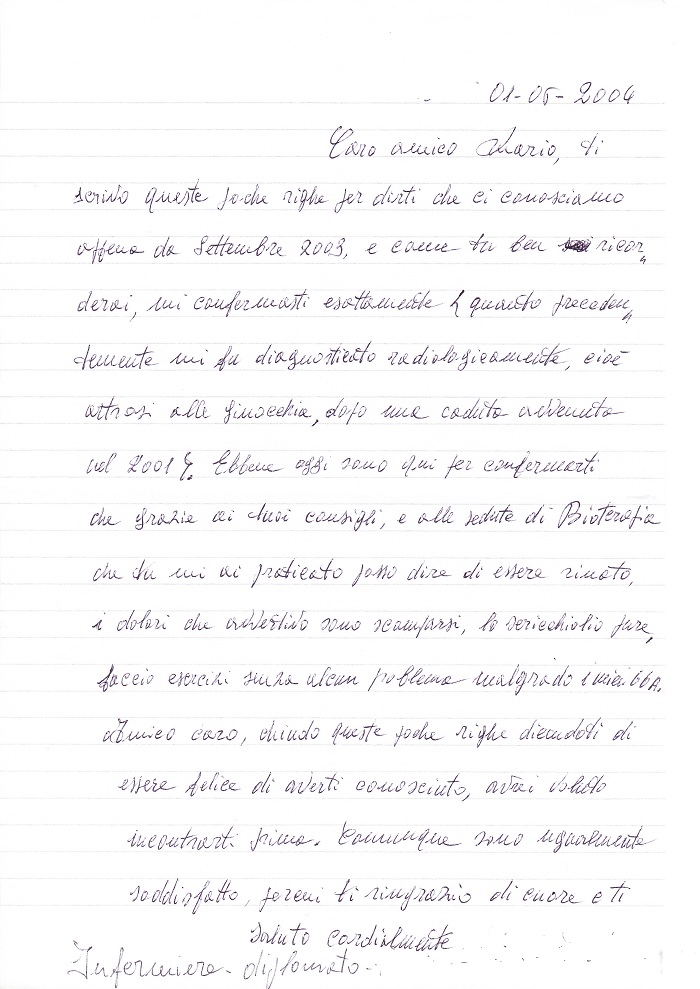 01-05-2004
Caro amico Mario, ti
scrivo queste poche righe per dirti che ci conosciamo
appena da Settembre 2003, e come tu ben ricor„
derai, mi confermasti esattamente ( quanto preceden„
temente mi fu diagnosticato radiologicamente, cioè
attrosi alle ginocchia, dopo una caduta avvenuta
nel 2001 ). Ebbene oggi sono qui per confermarti
che grazie ai tuoi consigli, e alle sedute di Bioterapia
che tu mi ai praticato posso dire di essere rinato,
i dolori che avvertivo sono scomparsi, lo scricchiolio pure,
faccio esercizi senza alcun problema malgrado i miei 66A.
Amico caro, chiudo queste poche righe dicendoti di
essere felice di averti conosciuto, avrei voluto
incontrarti prima. Comunque sono ugualmente
soddisfatto, perciò ti ringrazio di cuore e ti
saluto cordialmente
Infermiere - diplomato -